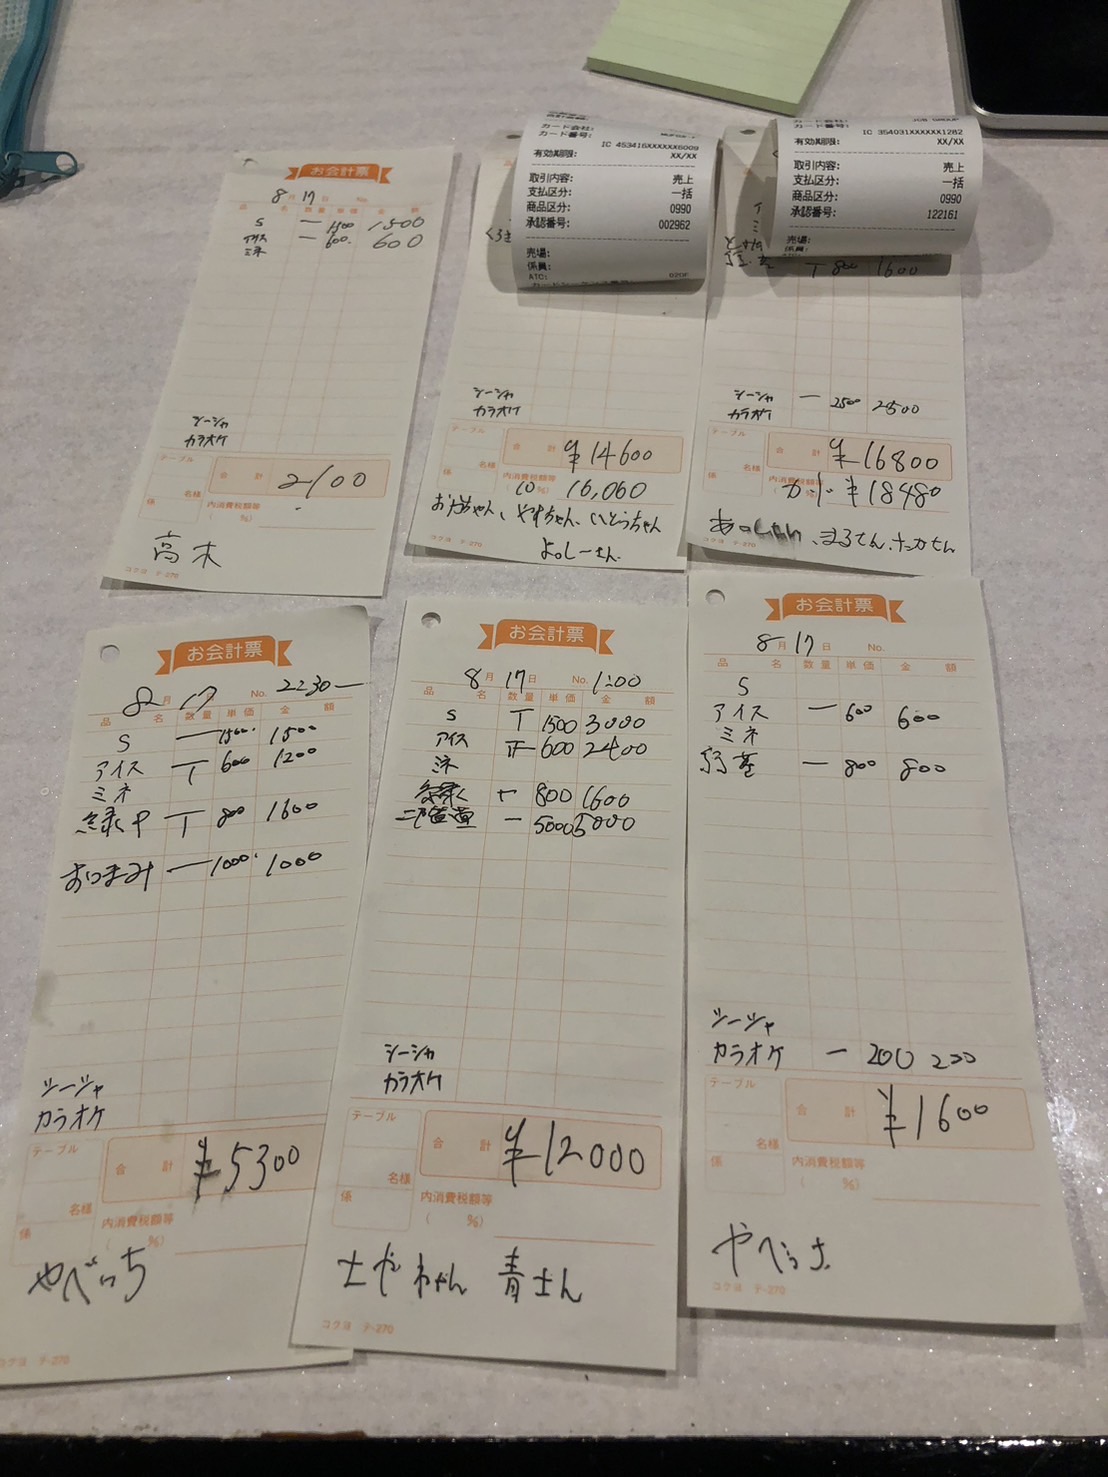 お会計票
8月17日 No.
品 名 数量 単価 金 額
S 一 1500 1500
アイス 一 600 600
ミネ
シーシャ
カラオケ
テーブル
合 計 2100
名様
係
内消費税額等
( %)
高木
コクヨ テ-270
カード会社:
カード番号:
IC 453416XXXXXX6009
有効期限: XX/XX
取引内容: 売上
支払区分: 一括
商品区分: 0990
承認番号: 002962
売場:
係員:
ATC: 020F
シーシャ
カラオケ
テーブル
合 計 ¥14600
名様
係
内消費税額等
10 %) 16,060
よっしーさん
コクヨ テ-270
JCB GROUP
カード会社:
カード番号:
IC 354031XXXXXX1282
有効期限: XX/XX
取引内容: 売上
支払区分: 一括
商品区分: 0990
承認番号: 122161
売場:
係員:
T 800 1600
シーシャ 一 2500 2500
カラオケ
テーブル
合 計 ¥16800
名様
係
カード ¥18480
コクヨ テ-270
お会計票
8月17日 No. 22:30ー
品 名 数量 単価 金 額
S 一 1500 1500
アイス T 600 1200
ミネ
緑茶 T 800 1600
おつまみ 一 1000 1000
シーシャ
カラオケ
テーブル
合 計 ¥5300
名様
係
内消費税額等
( %)
やべっち
コクヨ テ-270
お会計票
8月17日 No. 1:00
品 名 数量 単価 金 額
S T 1500 3000
アイス 正 600 2400
ミネ
T 800 1600
一 5000 5000
シーシャ
カラオケ
テーブル
合 計 ¥12000
名様
係
内消費税額等
( %)
青さん
コクヨ テ-270
お会計票
8月17日 No.
品 名 数量 単価 金 額
S
アイス 一 600 600
ミネ
一 800 800
シーシャ
カラオケ 一 200 200
テーブル
合 計 ¥1600
名様
係
内消費税額等
( %)
やべっち
コクヨ テ-270